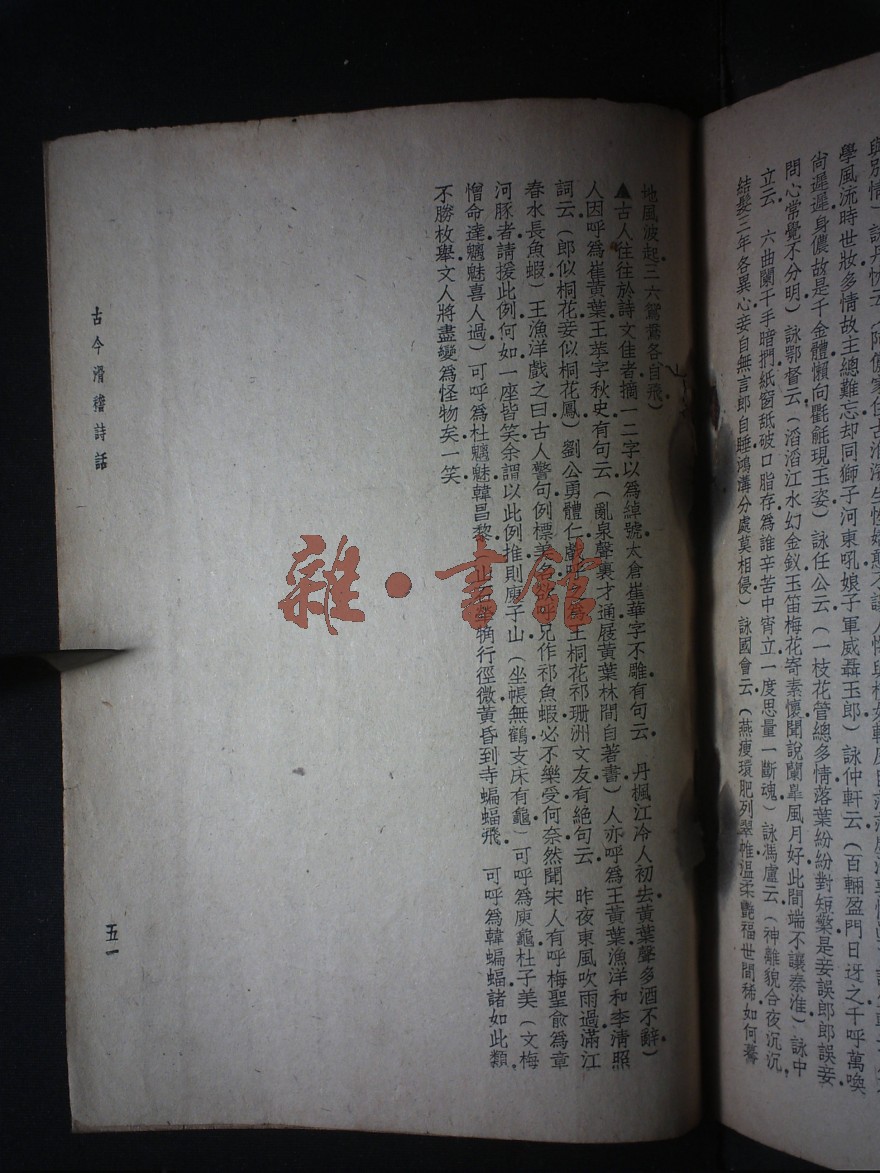 學風流時世妝多情故主總難忘却同獅子河東吼娘子軍威聶玉郎）詠仲軒云（百輛盈門日迓之千呼萬喚
尚遲遲身儂故是千金體懶向氍毹現玉姿）詠任公云（一枝花管總多情落葉紛紛對短檠是妾誤郎郎誤妾
問心常覺不分明）詠鄂督云（滔滔江水幻金釵玉笛梅花寄素懷聞說闌皐風月好此間端不讓秦淮）詠中
立云　六曲闌干手暗捫紙窗舐破口脂存為誰辛苦中宵立一度思量一斷魂）詠馮廬云（神離貌合夜沉沉
結髮三年各異心妾自無言郎自睡鴻溝分處莫相侵）詠國會云（燕瘦環肥列翠帷溫柔艷福世間稀如何驀
地風波起三六鴛鴦各自飛）
▲古人往往於詩文佳者摘一二字以為綽號太倉崔華字不雕有句云　丹楓江冷人初去黃葉聲多酒不辭）
人因呼為崔黃葉王苹字秋史有句云（亂泉聲裏才通屐黃葉林間自著書）人亦呼為王黃葉漁洋和李清照
詞云（郎似桐花妾似桐花鳳）劉公勇體仁戲呼之為王桐花祁珊洲文友有絕句云　昨夜東風吹雨過滿江
春水長魚蝦）王漁洋戲之曰古人警句例標美　呼兄作祁魚蝦必不樂受何奈然聞宋人有呼梅聖俞為章
河豚者請援此例何如一座皆笑余謂以此例推則庾子山（坐帳無鶴支床有龜）可呼為庾龜杜子美（文梅
憎命達魑魅喜人過）可呼為杜魑魅韓昌黎　山石犖确行徑微黃昏到寺蝙蝠飛　可呼為韓蝙蝠諸如此類
不勝枚舉文人將盡變為怪物矣一笑
古今滑稽詩話
五一
雜·書館